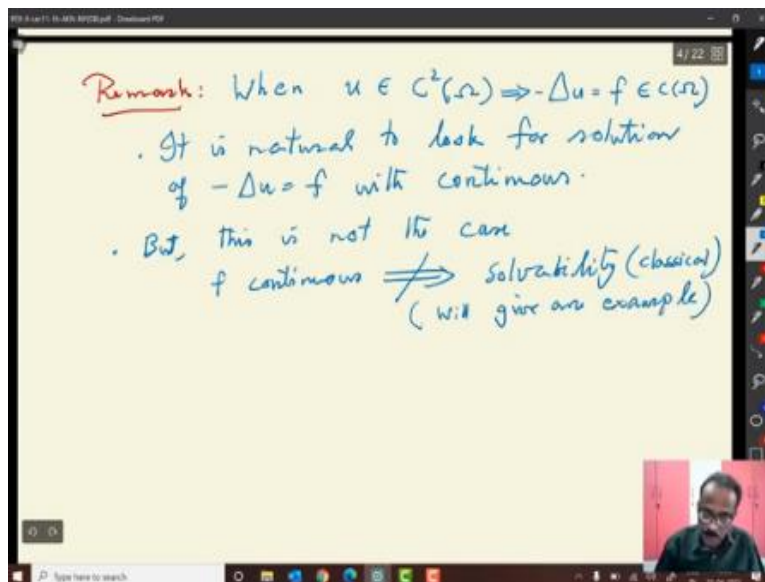 4/22
Remark: When u ∈ C²(Ω) ⇒ -Δu = f ∈ C(Ω)
. It is natural to look for solution
of -Δu = f with continuous.
. But, this is not the case
f continuous ⇏ solvability (classical)
(will give an example)
Type here to search